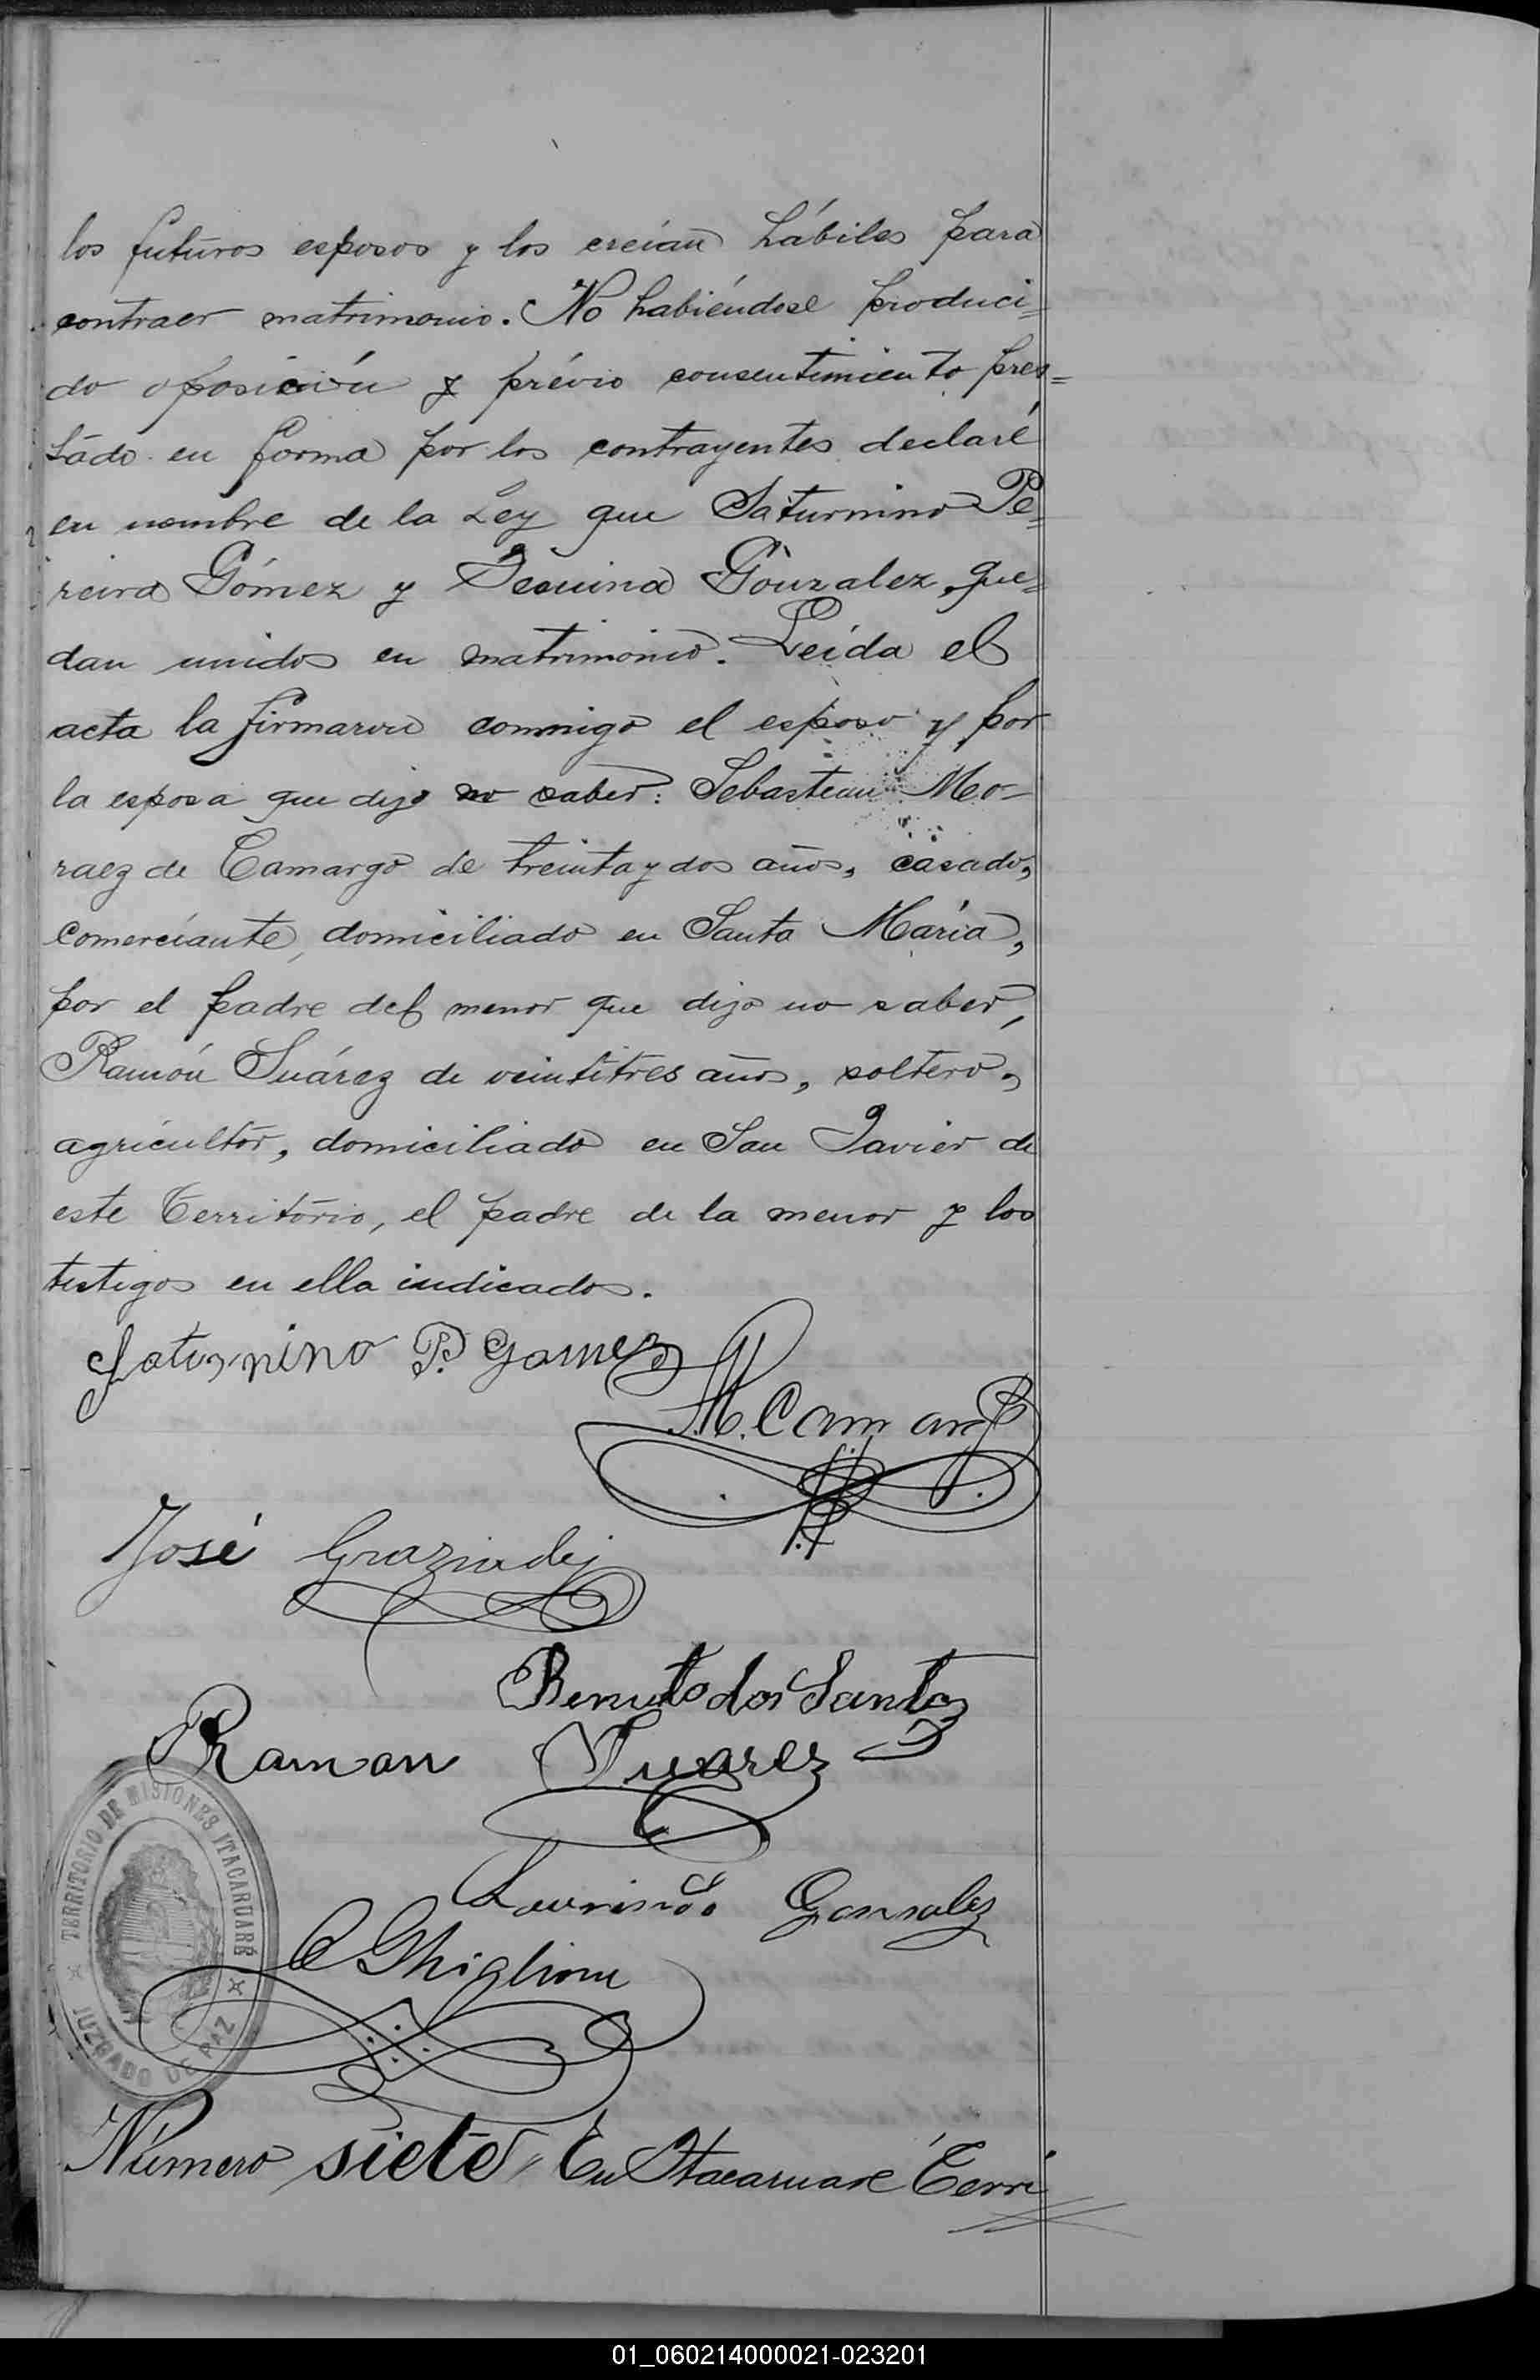 los futuros esposos y los creían hábiles para
contraer matrimonio. No habiéndose produci=
do oposición y prévio consentimiento pres=
tado en forma por los contrayentes declaré
en nombre de la Ley que Saturnino Pe=
reira Gómez y Gonzalez, que=
dan unidos en matrimonio. Leída el
acta la firmaron conmigo el esposo y por
la esposa que dijo no saber: Sebastean Mo-
raez de Camargo de treinta y dos años, casado,
comerciante, domiciliado en Santa María,
por el padre del menor que dijo no saber,
Ramón Suárez de veintitres años, soltero,
agricultor, domiciliado en San Javier de
este Territorio, el padre de la menor y los
testigos en ella indicados.
Saturnino P. Gomez
M. Camargo
José Graziadei
Benito dos Santos
Ramon Suarez
Laurindo Gonsalez
C Ghiglione
TERRITORIO DE MISIONES ITACARUARÉ
JUZGADO DE PAZ
Número siete En Itacaruaré Terri
01_060214000021-023201